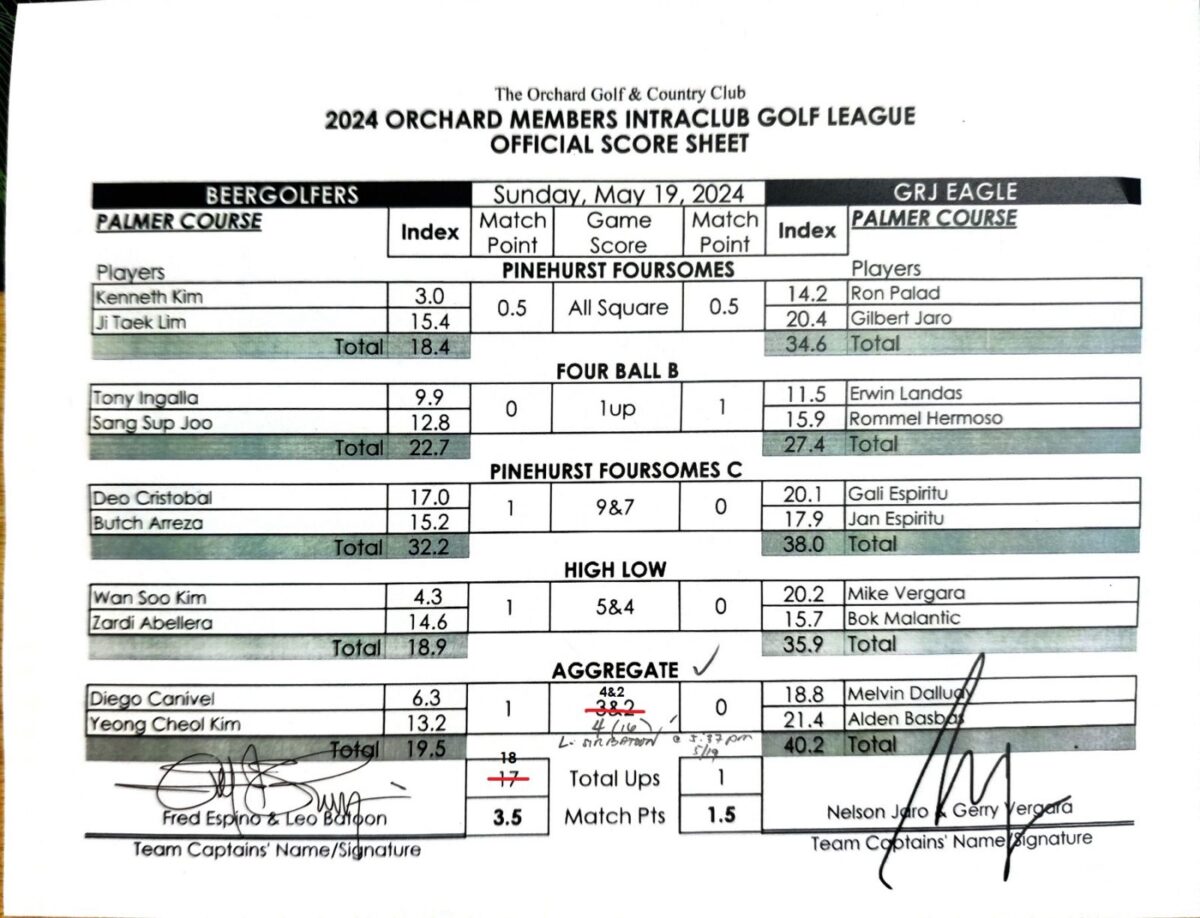 The Orchard Golf & Country Club
2024 ORCHARD MEMBERS INTRACLUB GOLF LEAGUE
OFFICIAL SCORE SHEET
BEERGOLFERS Sunday, May 19, 2024 GRJ EAGLE
PALMER COURSE Index Match Point Game Score Match Point Index PALMER COURSE
Players PINEHURST FOURSOMES Players
Kenneth Kim 3.0 0.5 All Square 0.5 14.2 Ron Palad
Ji Taek Lim 15.4 20.4 Gilbert Jaro
Total 18.4 34.6 Total
FOUR BALL B
Tony Ingalla 9.9 0 1up 1 11.5 Erwin Landas
Sang Sup Joo 12.8 15.9 Rommel Hermoso
Total 22.7 27.4 Total
PINEHURST FOURSOMES C
Deo Cristobal 17.0 1 9&7 0 20.1 Gali Espiritu
Butch Arreza 15.2 17.9 Jan Espiritu
Total 32.2 38.0 Total
HIGH LOW
Wan Soo Kim 4.3 1 5&4 0 20.2 Mike Vergara
Zardi Abellera 14.6 15.7 Bok Malantic
Total 18.9 35.9 Total
AGGREGATE
4&2
Diego Canivel 6.3 1 3&2 0 18.8 Melvin Dalluay
Yeong Cheol Kim 13.2 4 (16) 21.4 Alden Basbas
Total 19.5 L. SIR BATOON @ 5:37 pm 5/19 40.2 Total
18
17 Total Ups 1
Fred Espino & Leo Batoon 3.5 Match Pts 1.5 Nelson Jaro & Gerry Vergara
Team Captains' Name/Signature Team Captains' Name/Signature